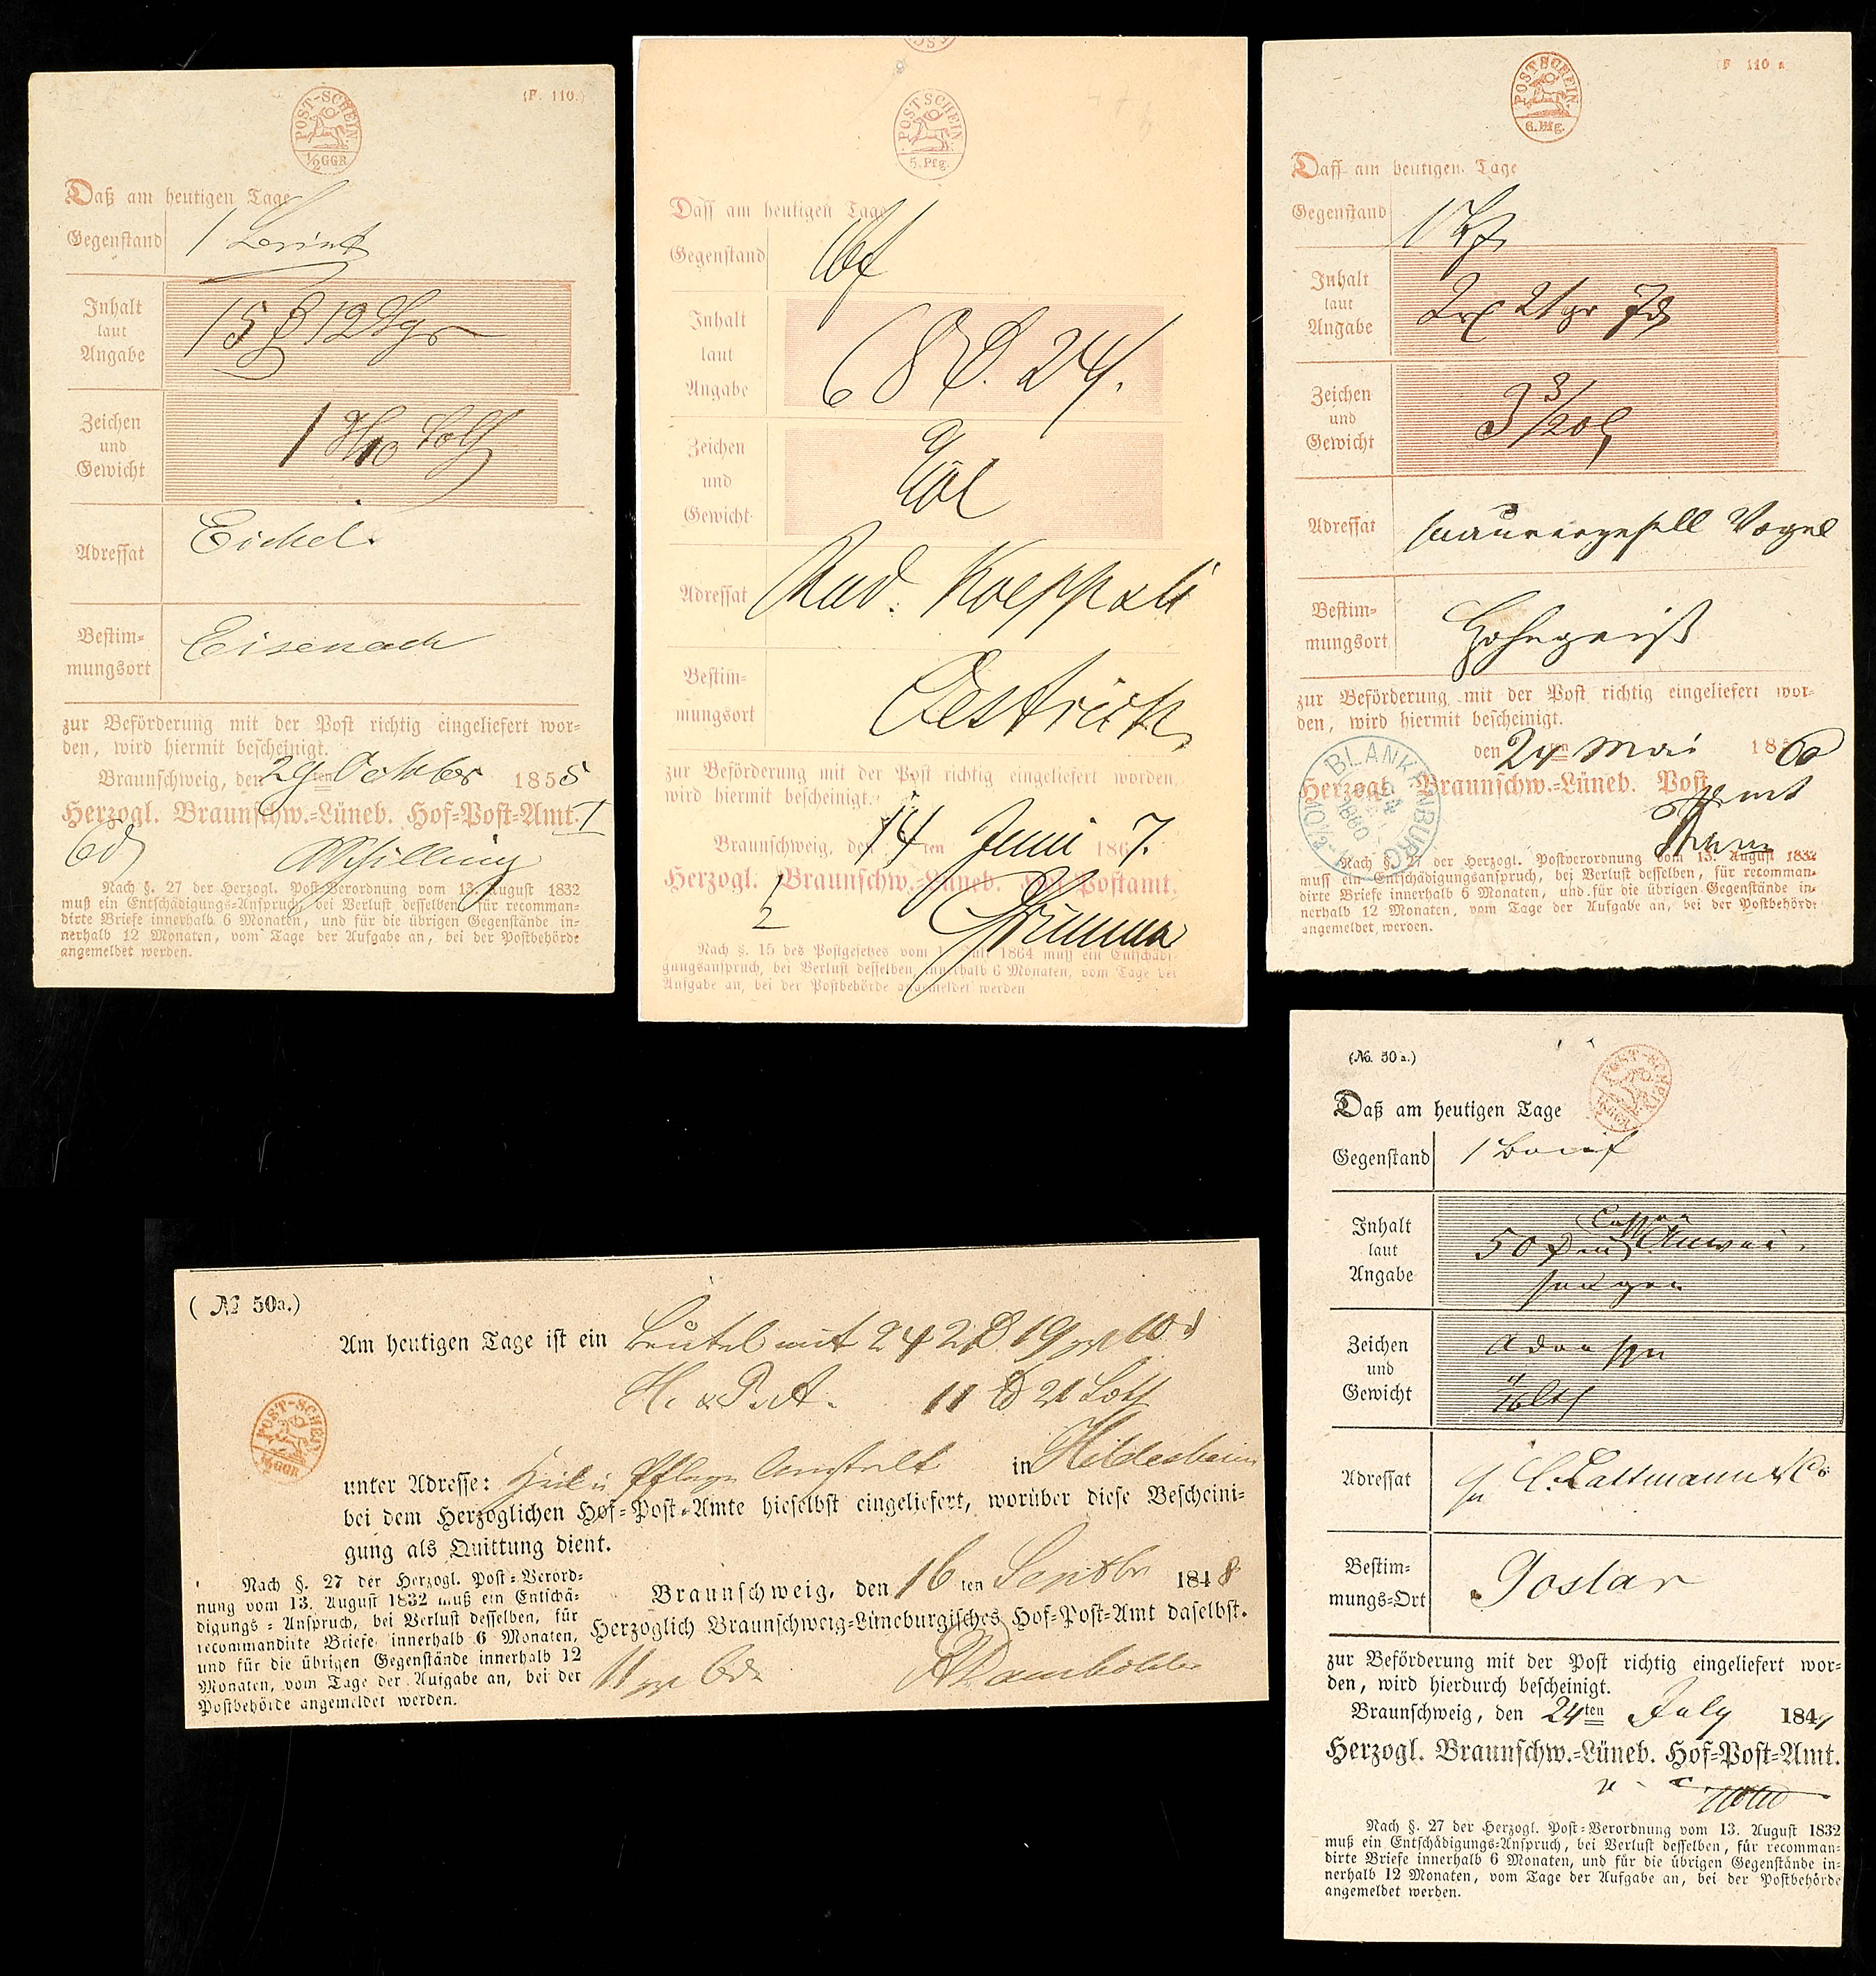 POST-SCHEIN
½ GGR
(F. 110.)
Daß am heutigen Tage
Gegenstand
1
Inhalt
laut
Angabe
15
Zeichen
und
Gewicht
1
Adressat
Eichel
Bestim-
mungsort
Eisenach
zur Beförderung mit der Post richtig eingeliefert wor-
den, wird hiermit bescheinigt.
Braunschweig, den 29ten October 1855
Herzogl. Braunschw.-Lüneb. Hof-Post-Amt. I
Nach §. 27 der Herzogl. Post-Verordnung vom 13. August 1832
muß ein Entschädigungs-Anspruch, bei Verlust desselben, für recomman-
dirte Briefe innerhalb 6 Monaten, und für die übrigen Gegenstände in-
nerhalb 12 Monaten, vom Tage der Aufgabe an, bei der Postbehörde
angemeldet werden.
POSTSCHEIN
5. Pfg.
Dass am heutigen Tage
Gegenstand
Inhalt
laut
Angabe
68 24
Zeichen
und
Gewicht
Adressat
Bestim-
mungsort
Oestrich
zur Beförderung mit der Post richtig eingeliefert worden,
wird hiermit bescheinigt.
Braunschweig, den 14ten Juni 1867.
Herzogl. Braunschw.-Lüneb. Hof-Postamt.
Nach §. 15 des Postgesetzes vom 1. Juli 1864 muss ein Entschädi-
gungsanspruch, bei Verlust desselben, innerhalb 6 Monaten, vom Tage der
Aufgabe an, bei der Postbehörde angemeldet werden
POSTSCHEIN
6. Pfg.
(F. 110 a
Dass am heutigen Tage
Gegenstand
Inhalt
laut
Angabe
Zeichen
und
Gewicht
Adressat
Maurergesell Vogel
Bestim-
mungsort
Hohegeiß
zur Beförderung mit der Post richtig eingeliefert wor-
den, wird hiermit bescheinigt.
den 24ten Mai 1860
Herzogl. Braunschw.-Lüneb. Post
Amt
BLANKENBURG
1860
Nach §. 27 der Herzogl. Postverordnung vom 13. August 1832
muss ein Entschädigungsanspruch, bei Verlust desselben, für recomman-
dirte Briefe innerhalb 6 Monaten, und für die übrigen Gegenstände in-
nerhalb 12 Monaten, vom Tage der Aufgabe an, bei der Postbehörde
angemeldet werden.
(№ 50a.)
Am heutigen Tage ist ein Beutel mit 242 19 10
11 21 Loth
POST-SCHEIN
½ GGR
unter Adresse: Heil u Pflege Anstalt in Hildesheim
bei dem Herzoglichen Hof-Post-Amte hieselbst eingeliefert, worüber diese Bescheini-
gung als Quittung dient.
Nach §. 27 der Herzogl. Post-Verord-
nung vom 13. August 1832 muß ein Entschä-
digungs-Anspruch, bei Verlust desselben, für
recommandirte Briefe innerhalb 6 Monaten,
und für die übrigen Gegenstände innerhalb 12
Monaten, vom Tage der Aufgabe an, bei der
Postbehörde angemeldet werden.
Braunschweig, den 16ten Septbr 1848
Herzoglich Braunschweig-Lüneburgisches Hof-Post-Amt daselbst.
(№. 50 a.)
POST-SCHEIN
Daß am heutigen Tage
Gegenstand
1 Brief
Inhalt
laut
Angabe
50
Zeichen
und
Gewicht
Adresse
Adressat
Bestim-
mungs-Ort
Goslar
zur Beförderung mit der Post richtig eingeliefert wor-
den, wird hierdurch bescheinigt.
Braunschweig, den 24ten July 184
Herzogl. Braunschw.-Lüneb. Hof-Post-Amt.
Nach §. 27 der Herzogl. Post-Verordnung vom 13. August 1832
muß ein Entschädigungs-Anspruch, bei Verlust desselben, für recomman-
dirte Briefe innerhalb 6 Monaten, und für die übrigen Gegenstände in-
nerhalb 12 Monaten, vom Tage der Aufgabe an, bei der Postbehörde
angemeldet werden.